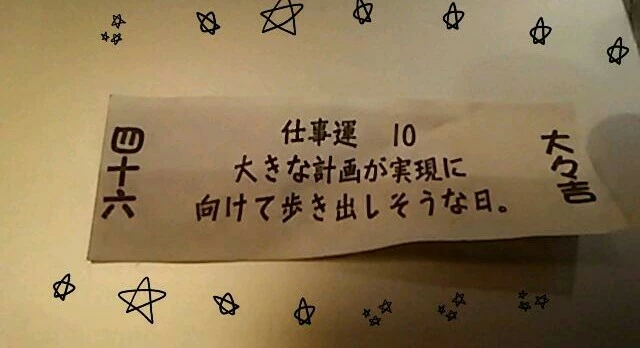 四十六
仕事運 10
大きな計画が実現に
向けて歩き出しそうな日。
大々吉